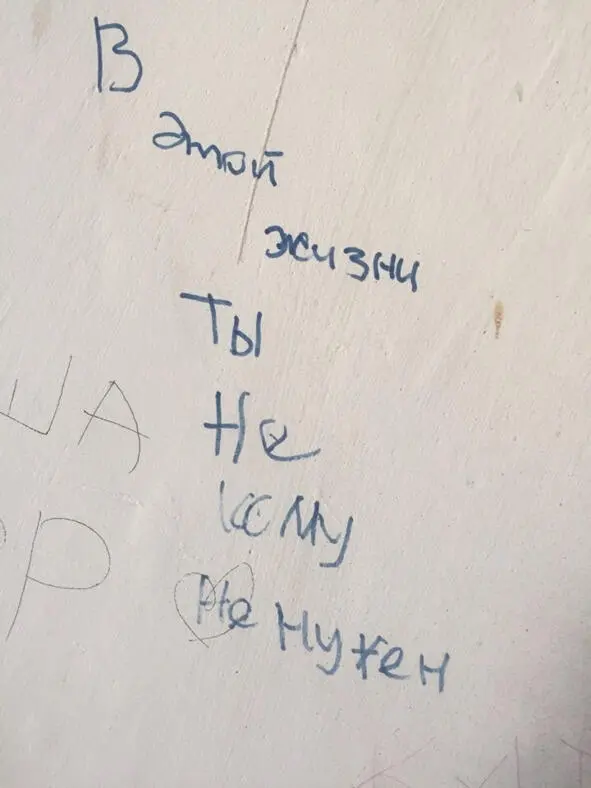 В
этой
жизни
ты
не
кому
не нужен
ША
Р